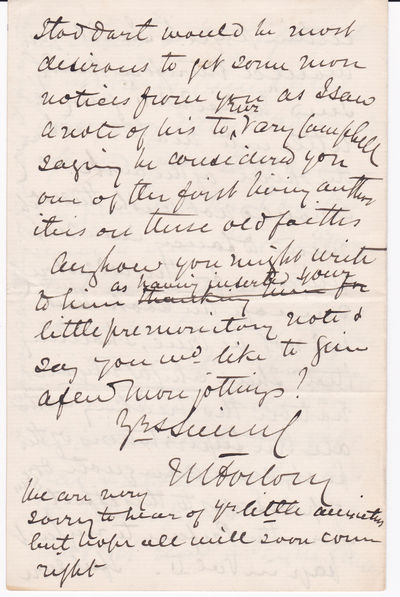 Stoddart would be most
desirous to get some more
notices from you as I saw
a note of his to Vary Campbell
saying he considered you
one of the first living author
ities on these old faiths
Anyhow you might write
to him as having inserted your thanking him for
little premonitory note &
say you wd like to give
a few more jottings?
Yrs
We are very
sorry to hear of yr little
but hope all will soon come
right